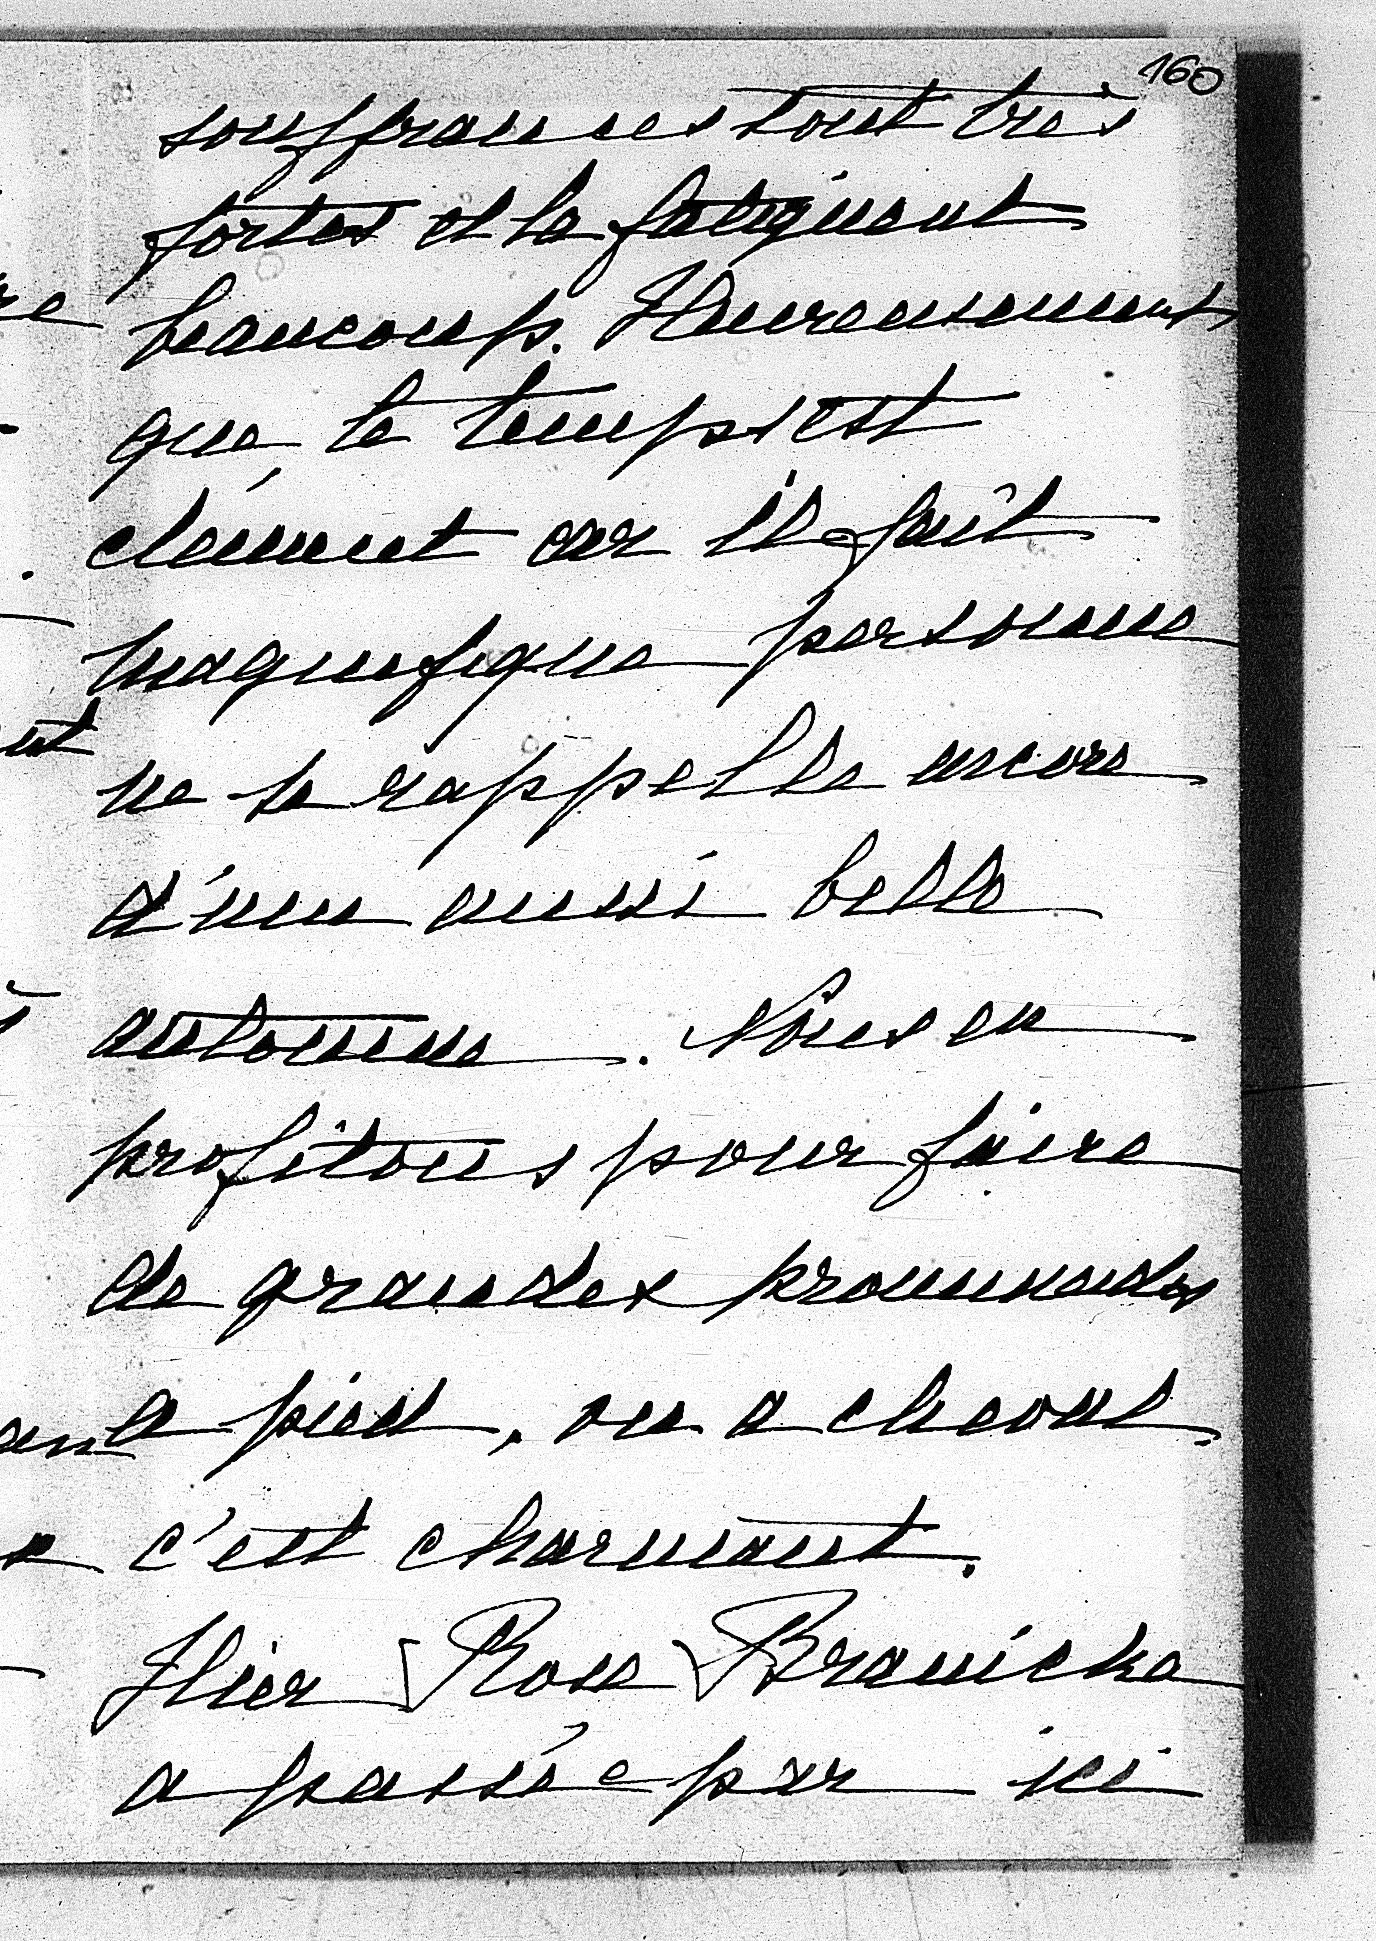 160
souffrances sont très
fortes et la fatiguent
beaucoup. Heureusement
que le temps est
clément car il fait
magnifique personne
ne se rappelle encore
d'une aussi belle
automne. Nous en
profitons pour faire
de grandes promenades
a pied, ou a cheval,
c'est charmant.
Hier Rose Branicka
a passée par ici